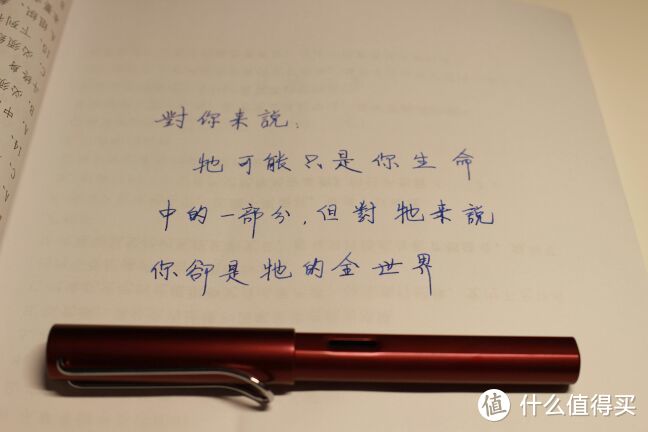 對你来説：
牠可能只是你生命
中的一部分，但對牠来説
你卻是牠的全世界
值 什么值得买